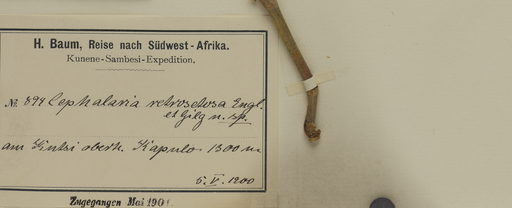 H. Baum, Reise nach Südwest-Afrika.
Kunene-Sambesi-Expedition.
№ 894 Cephalaria retrosetosa Engl.
et Gilg n. sp.
am Kutsi oberh. Kapulo 1300 m
5. V. 1900
Zugegangen Mai 1901.